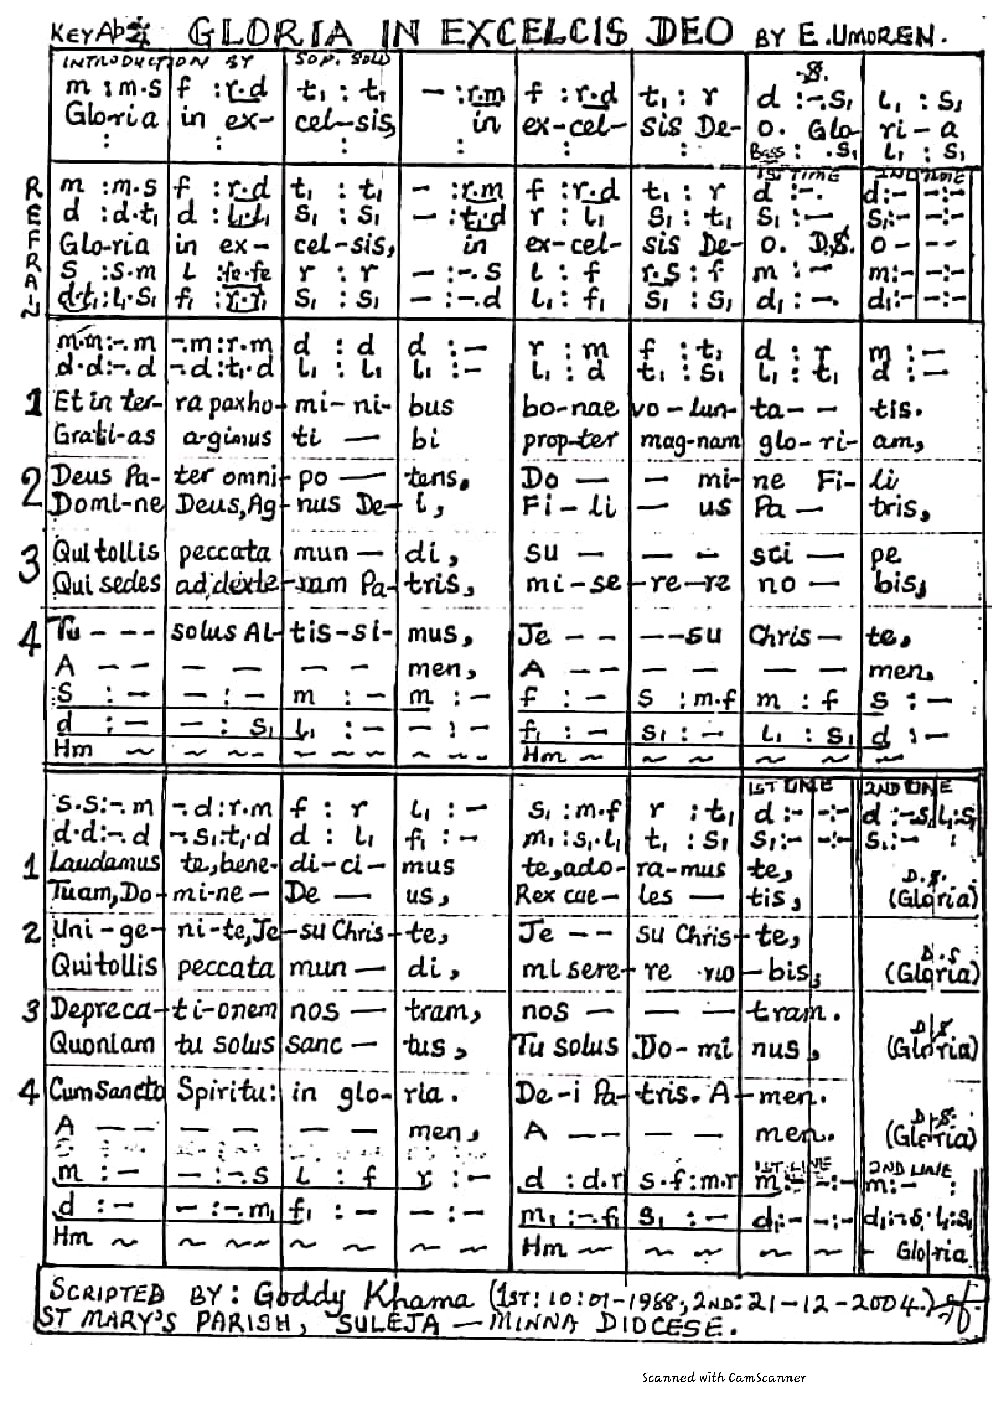 Key Ab 2/4 GLORIA IN EXCELCIS DEO BY E. UMOREN.
INTRODUCTION BY SOP. SOLO
m :m.s f :r.d t₁ : t₁ – :r.m f :r.d t₁ : r d :-.S₁ L₁ : S₁
Gloria in ex- cel-sis, in ex-cel- sis De- o. Glo- ri-a
: : : : : : Bass : .S₁ L₁ : S₁
REFRAIN
1ST TIME 2ND TIME
m :m.s f :r.d t₁ : t₁ – :r.m f :r.d t₁ : r d :-. d:- -:-
d :d.t₁ d :L₁.L₁ S₁ : S₁ – :t₁.d r : L₁ S₁ : t₁ S₁ :– S₁:- -:-
Glo-ria in ex- cel-sis, in ex-cel- sis De- o. D.S. o - - -
S :S.m L :fe.fe r : r – :-.S L : f r.S : f m :– m:- -:-
d.t₁:L₁.S₁ f₁ :r₁.r₁ S₁ : S₁ – :-.d L₁ : f₁ S₁ : S₁ d₁ :–. d₁:- -:-
m.m:-.m -.m:r.m d : d d :– r : m f : t₁ d : r m :–
d.d:-.d -.d:t₁.d L₁ : L₁ L₁ :– L₁ : d t₁ : S₁ L₁ : t₁ d :–
1 Et in ter- ra pax ho- mi- ni- bus bo-nae vo-lun- ta- - tis.
Grati-as agimus ti — bi prop-ter mag-nam glo-ri- am,
2 Deus Pa- ter omni- po — tens, Do — — mi- ne Fi- li
Domi-ne Deus, Ag- nus De- i, Fi-li — us Pa — tris,
3 Qui tollis peccata mun — di, su — — — sci — pe
Qui sedes ad dexte- ram Pa- tris, mi-se -re-re no — bis,
4 Tu - - - solus Al- tis-si- mus, Je - - ---su Chris — te,
A — — — — — — men, A — — — — — — men.
S : – – : – m : – m : – f : – S : m.f m : f S : –
d : – – : S₁ L₁ : – – : – f₁ : – S₁ : – L₁ : S₁ d : –
Hm ~ ~ ~~ ~ ~ ~ ~ Hm ~ ~ ~ ~ ~ ~
1ST LINE 2ND LINE
S.S:-.m -.d:r.m f : r L₁ : – S₁ :m.f r : t₁ d :- -:- d :-.S₁ L₁:S₁
d.d:-.d -.S₁:t₁.d d : L₁ f₁ : – m₁ :S₁.L₁ t₁ : S₁ S₁:- -:- S₁:- :
1 Laudamus te, bene- di-ci- mus te, ado- ra-mus te, D.S.
Tuam, Do- mi-ne — De — us, Rex cae- les — tis, (Gloria)
2 Uni-ge- ni-te, Je -su Chris- te, Je - - su Chris- te, D.S
Qui tollis peccata mun — di, mi sere- re no -bis, (Gloria)
3 Depreca- ti-onem nos — tram, nos — — — tram. D.S
Quoniam tu solus sanc — tus, Tu solus Do-mi nus, (Gloria)
4 Cum Sancto Spiritu: in glo- ria. De-i Pa- tris. A -men. D.S.
A — — — — — — men, A — — — — men. (Gloria)
1ST LINE 2ND LINE
m : – – :-.S L : f r : – d :d.r S.f:m.r m:- -:- m:- :
d : – – :-.m₁ f₁ : – – : – m₁ :-.f₁ S₁ : – d₁:- -:- d₁:-.S₁ L₁:S₁
Hm ~ ~ ~~ ~ ~ ~ ~ Hm ~ ~ ~ ~ ~ - Gloria
SCRIPTED BY: Goddy Khama (1ST: 10:07-1988, 2ND: 21-12-2004.)
ST MARY'S PARISH, SULEJA — MINNA DIOCESE.
Scanned with CamScanner